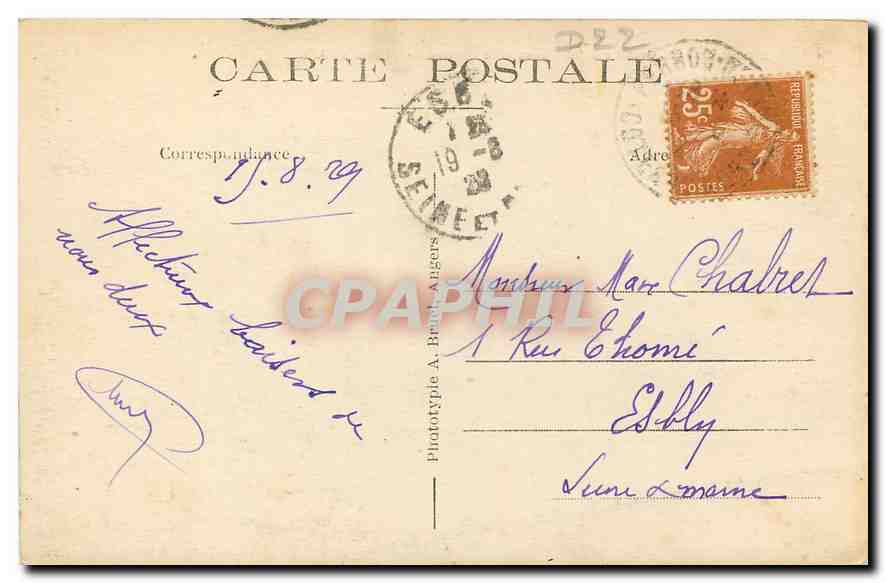 D22
CARTE POSTALE
Correspondance
Adre
15.8.29
Affectueux baisers de
nous deux
ESB
19 -8
29
SEINE ET
REPUBLIQUE FRANÇAISE
25c
POSTES
Phototypie A. Bruel, Angers
Monsieur Marc Chabret
1 Rue Thomé
Esbly
Seine & marne
CPAPHIL